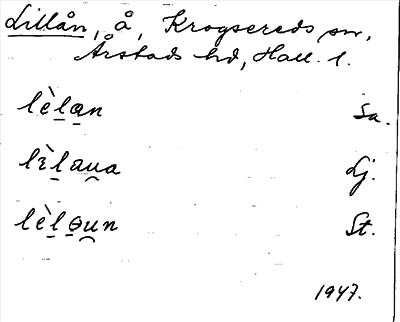 Lillån, å, Krogsereds sn,
Årstads hd, Hall. l.
lèḻa̱n Sa.
lɛ̀ḻau̯a Lj.
lèḻɵu̯n St.
1947.